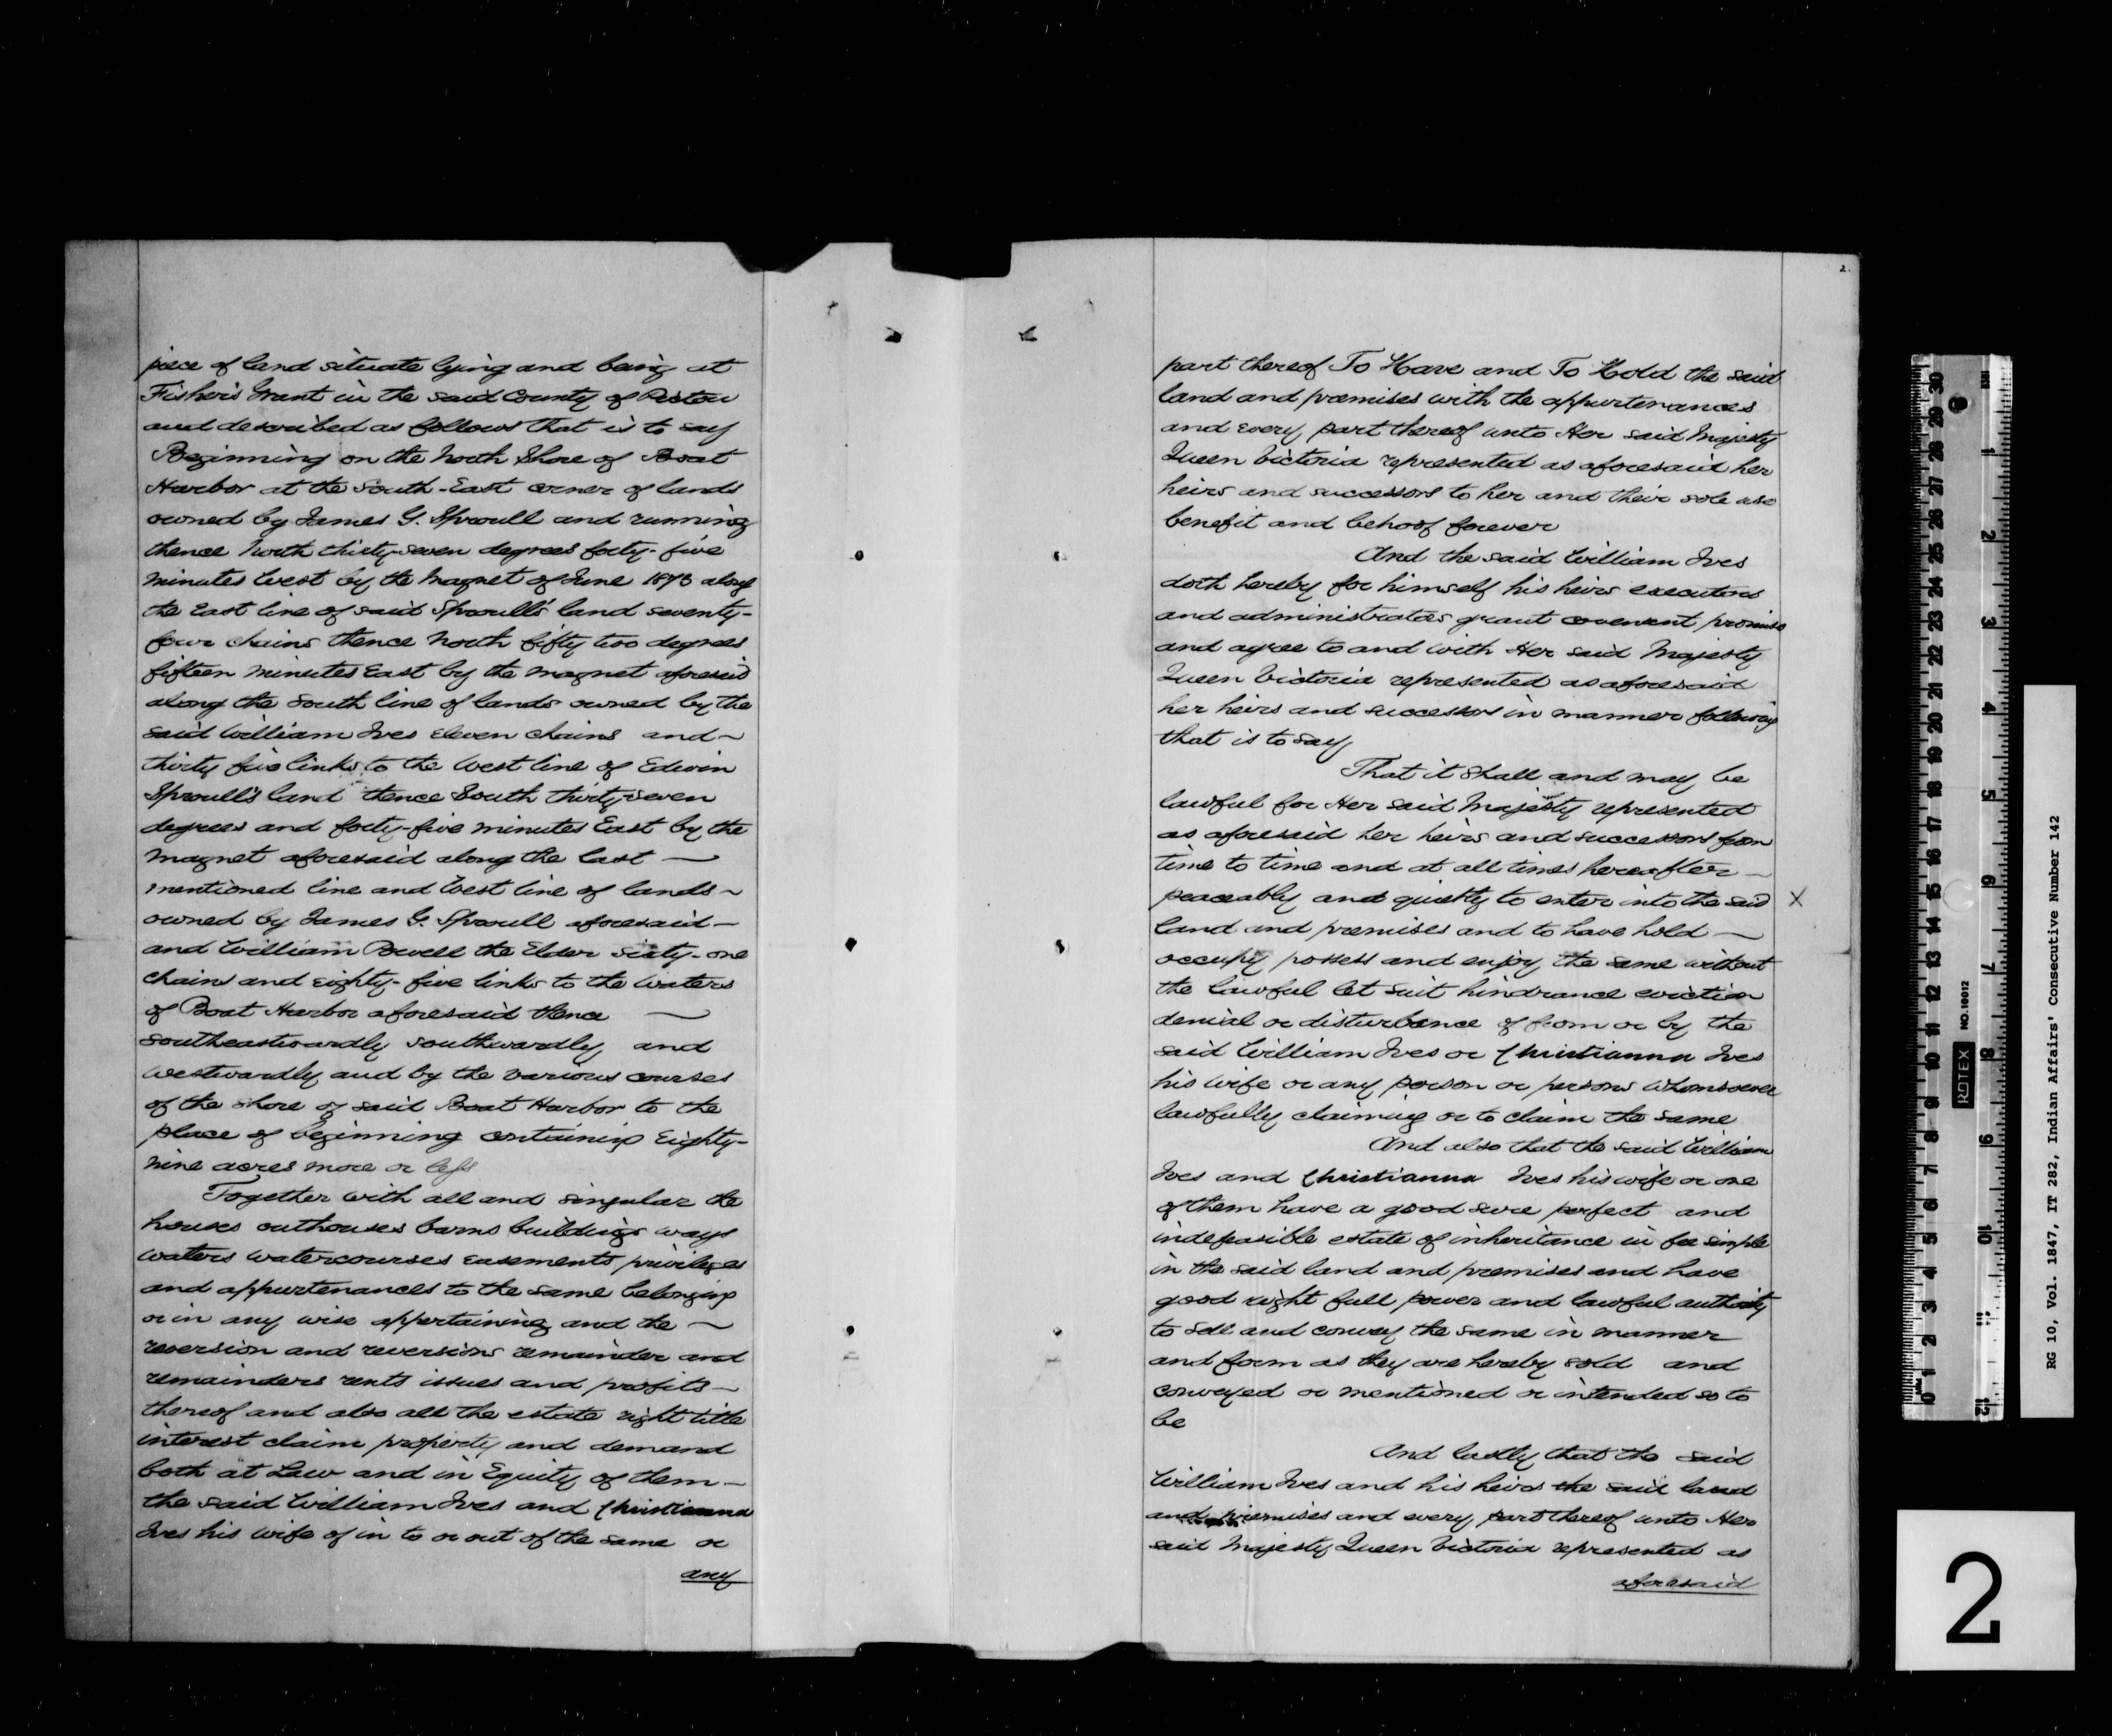 piece of land situate lying and being at
Fisher's Grant in the said County of Pictou
and described as follows that is to say
Beginning on the North Shore of Boat
Harbor at the South-East corner of lands
owned by James G. Sproull and running
thence North thirty-seven degrees forty-five
minutes West by the Magnet of June 1873 along
the East line of said Sproull's land seventy-
four chains thence North fifty two degrees
fifteen minutes East by the magnet aforesaid
along the South line of lands owned by the
said William Ives Eleven chains and ~
thirty five links to the West line of Edwin
Sproull's land thence South thirty-seven
degrees and forty-five minutes East by the
Magnet aforesaid along the last —
mentioned line and West line of lands ~
owned by James G. Sproull aforesaid —
and William Powell the Elder sixty-one
chains and eighty-five links to the waters
of Boat Harbor aforesaid thence —
southeastwardly southwardly and
westwardly and by the various courses
of the shore of said Boat Harbor to the
place of beginning containing Eighty-
nine acres more or less
Together with all and singular the
houses outhouses barns buildings ways
waters watercourses easements privileges
and appurtenances to the same belonging
or in any wise appertaining and the ~
reversion and reversions remainder and
remainders rents issues and profits —
thereof and also all the estate right title
interest claim property and demand
both at Law and in Equity of them —
the said William Ives and Christianna
Ives his wife of in to or out of the same or
any
2
part thereof To Have and To Hold the said
land and premises with the appurtenances
and every part thereof unto Her said Majesty
Queen Victoria represented as aforesaid her
heirs and successors to her and their sole use
benefit and behoof forever
And the said William Ives
doth hereby for himself his heirs executors
and administrators grant covenant promise
and agree to and with Her said Majesty
Queen Victoria represented as aforesaid
her heirs and successors in manner following
that is to say
That it shall and may be
lawful for Her said Majesty represented
as aforesaid her heirs and successors from
time to time and at all times hereafter —
peaceably and quietly to enter into the said X
land and premises and to have hold —
occupy possess and enjoy the same without
the lawful let suit hindrance eviction
denial or disturbance of from or by the
said William Ives or Christianna Ives
his wife or any person or persons whomsoever
lawfully claiming or to claim the same
And also that the said William
Ives and Christianna Ives his wife or one
of them have a good sure perfect and
indefeasible estate of inheritance in fee simple
in the said land and premises and have
good right full power and lawful authority
to sell and convey the same in manner
and form as they are hereby sold and
conveyed or mentioned or intended so to
be
And lastly that the said
William Ives and his heirs the said land
and premises and every part thereof unto Her
said Majesty Queen Victoria represented as
aforesaid
ROTEX NO. 10012
RG 10, Vol. 1847, IT 282, Indian Affairs' Consecutive Number 142
2